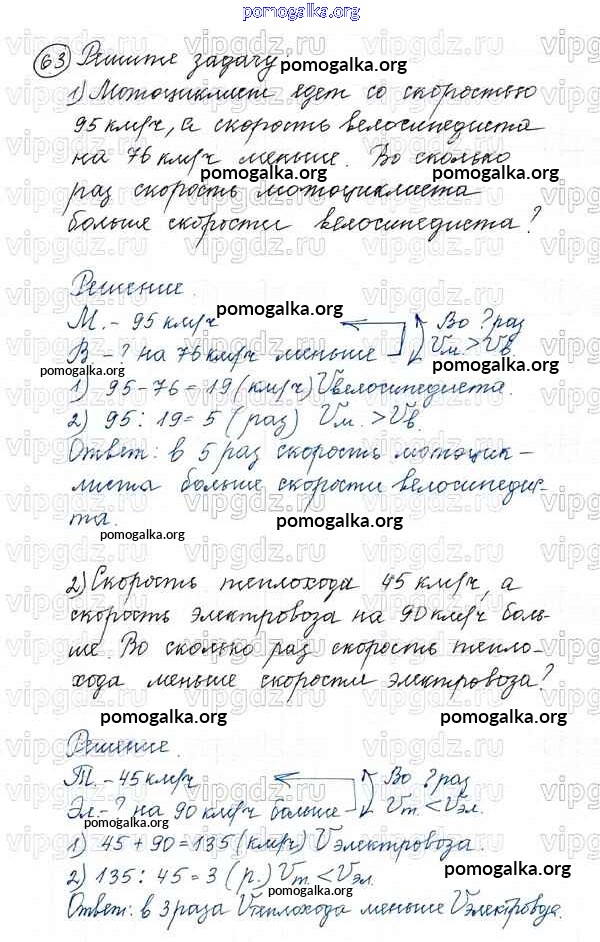 pomogalka.org
63 Решите задачу
pomogalka.org
1) Мотоциклист едет со скоростью
pomogalka.org
95 км/ч, а скорость велосипедиста
на 76 км/ч меньше. Во сколько
pomogalka.org pomogalka.org
раз скорость мотоциклиста
pomogalka.org
больше скорости велосипедиста?
Решение.
pomogalka.org
М. - 95 км/ч Во ? раз
В - ? на 76 км/ч меньше Vм. > Vв.
pomogalka.org pomogalka.org
1) 95-76=19 (км/ч) Vвелосипедиста.
2) 95:19=5 (раз) Vм. > Vв.
Ответ: в 5 раз скорость мотоцик-
листа больше скорости велосипедис-
та.
pomogalka.org
pomogalka.org
2) Скорость теплохода 45 км/ч, а
скорость электровоза на 90 км/ч боль-
ше. Во сколько раз скорость тепло-
хода меньше скорости электровоза?
pomogalka.org pomogalka.org
Решение.
Т. - 45 км/ч Во ? раз
Эл - ? на 90 км/ч больше Vт. < Vэл.
pomogalka.org
1) 45+90=135 (км/ч) Vэлектровоза.
2) 135:45=3 (р.) Vт. < Vэл.
pomogalka.org
Ответ: в 3 раза Vтеплохода меньше Vэлектровоза.
vipgdz.ru